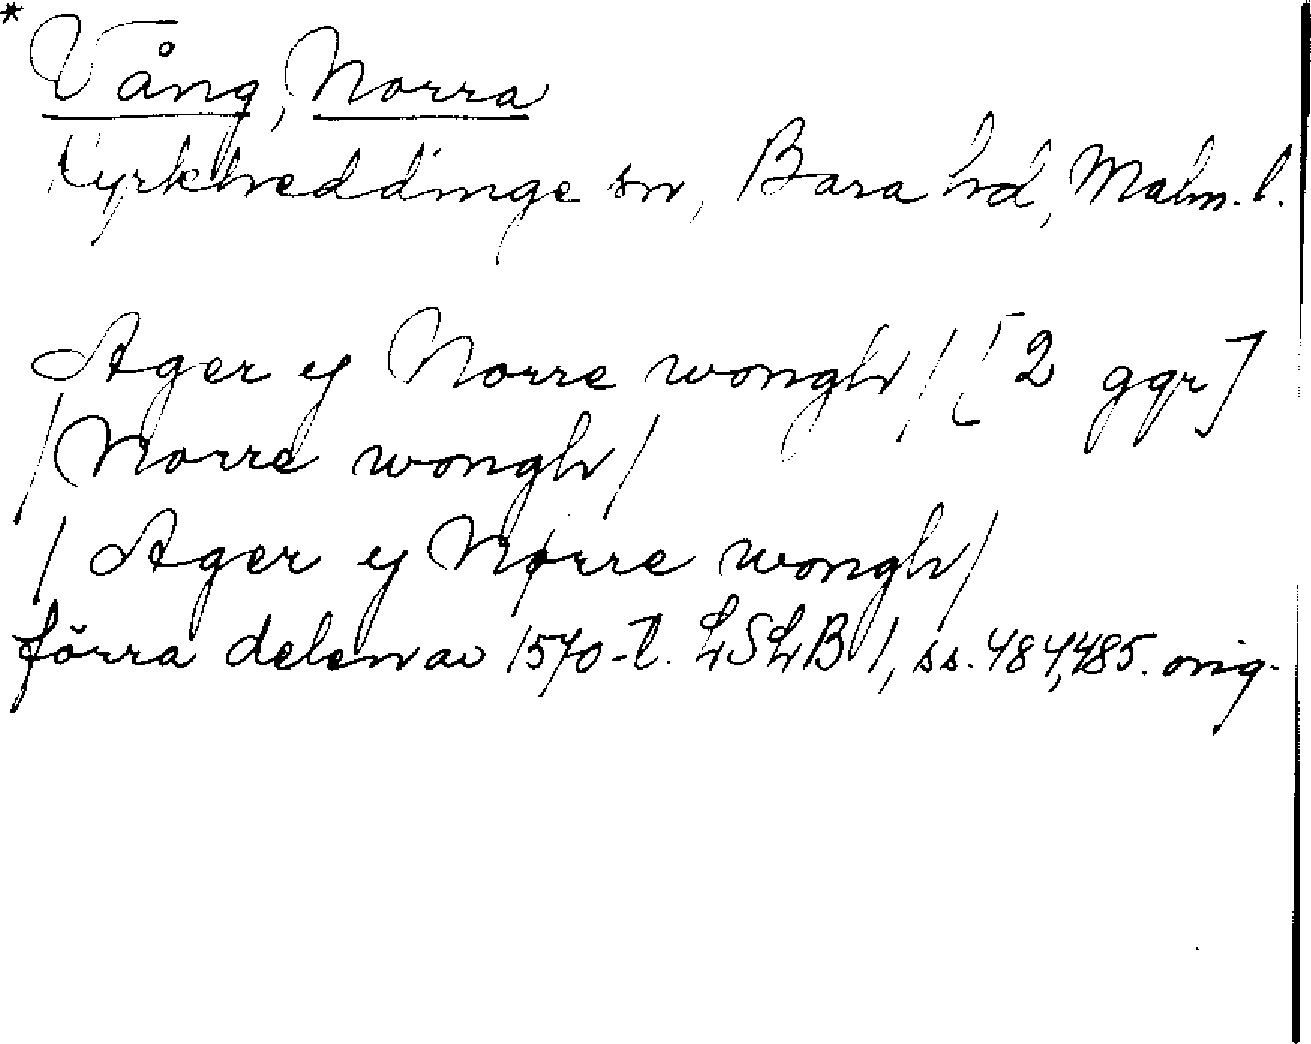 * Vång, Norra
Kyrkheddinge sn, Bara hd, Malm. l.
Ager ÿ Norre wongh / [2 ggr]
/ Norre wongh /
/ Ager ÿ Nørre wongh /
förra delen av 1570-t. LSLB 1, ss. 484, 485. orig.